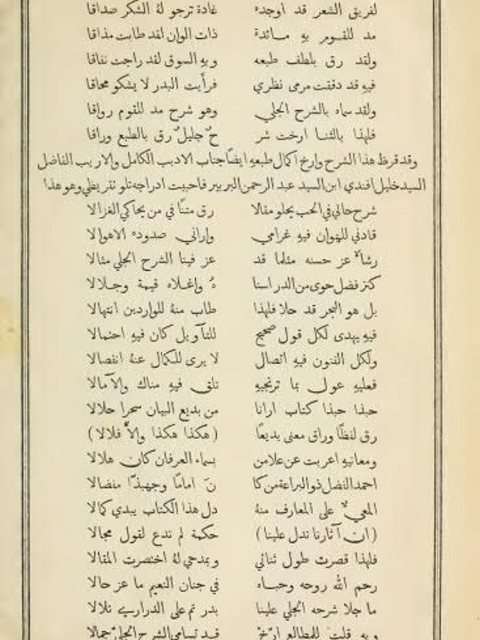 لفريق الشعر قد اوجده غادة ترجو له الشكر صداقا
مد للقوم به مائدة ذات الوان لقد طابت مذاقا
ولقد رق بلطف طبعه وبه السوق لقد راجت نفاقا
فيه قد دققت مرمى نظري فرأيت البدر لا يشكو محاقا
ولقد سماه بالشرح الجلي وهو شرح مد للقوم رواقا
فلهذا بالثنا ارخت شر حٌ جليلٌ رق بالطبع وراقا
وقد قرظ هذا الشرح وارخ اكمال طبعه ايضًا جناب الاديب الكامل والاريب الفاضل
السيد خليل افندي ابن السيد عبد الرحمن البربير فاحببت ادراجه تلو تقريظي وهو هذا
شرح حالي في الحب يحلو مقالا رق متنًا في من يحاكي الغزالا
قادني للهوان فيه غرامي واراني صدوده الاهوالا
رشاءٌ عز حسنه مثلما قد عز فينا الشرح الجلي مثالا
كنز فضل حوى من الدر اسنا هُ واغلاه قيمة وجلالا
بل هو البحر قد حلا فلهذا طاب منهُ للواردين انتهالا
فيه يهدى لكل قول صحيح للتأويل كان فيه احتمالا
ولكل الفنون فيه اتصال لا يرى للكمال عنهُ انفصالا
فعليه عول بما ترتجيه تلق فيه مناك والآمالا
حبذا حبذا كتاب ارانا من بديع البيان سحرا حلالا
رق لفظًا وراق معنى بديعًا (هكذا هكذا والا فلالا)
ومعانيه اعربت عن علا من بسماء العرفان كان هلالا
احمد الفضل ذو البراعة من كا ن امامًا وجهبذًا مفضالا
المعيٌّ على المعارف منهُ دل هذا الكتاب يبدي كمالا
(ان آثارنا تدل علينا) حكمة لم تدع لقول مجالا
فلهذا قصرت طول ثنائي وبمدحي لهُ اختصرت المقالا
رحم الله روحه وحباه في جنان النعيم ما عز حالا
ما جلا شرحه الجلي علينا بدر تم على الدراري تلالا
وبه قلت للمطالع ارخ قد تسامى الشرح الجلي جمالا